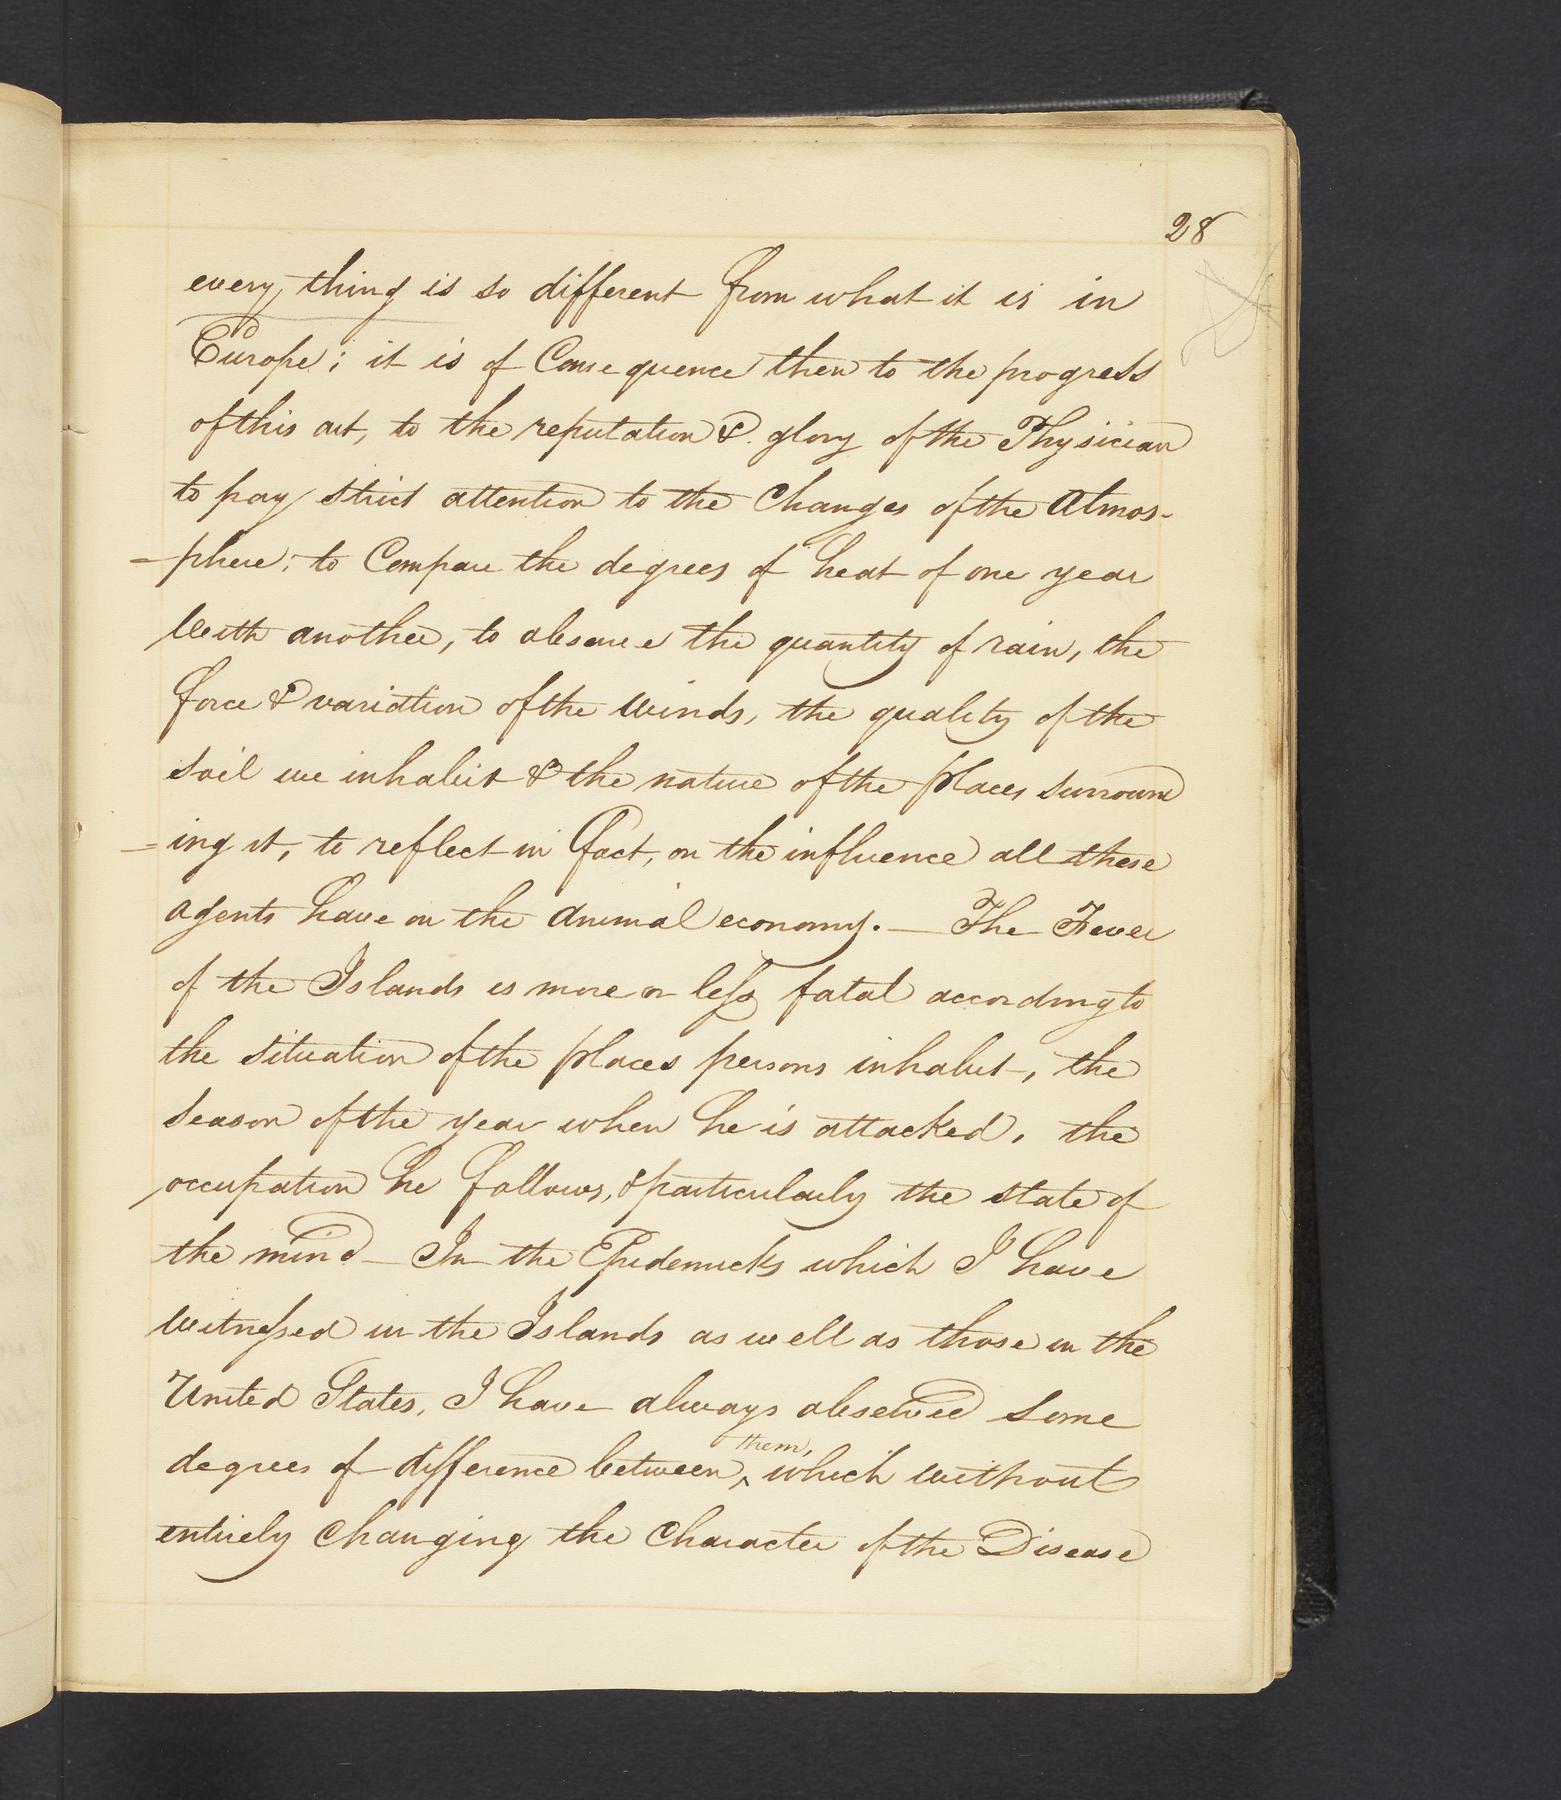 28
every thing is so different from what it is in
Europe; it is of Consequence then to the progress
of this art, to the reputation & glory of the Physician
to pay strict attention to the Changes of the Atmos-
=phere; to Compare the degrees of heat of one year
with another, to observe the quantity of rain, the
force & variation of the Winds, the quality of the
soil we inhabit & the nature of the places surround
=ing it, to reflect in fact, on the influence all these
agents have on the animal economy. — The Fever
of the Islands is more or less fatal according to
the situation of the places persons inhabit, the
season of the year when he is attacked, the
occupation he follows, & particularly the state of
the mind — In the Epidemicks which I have
witnessed in the Islands as well as those in the
United States, I have always observed some
degrees of difference between ^ them, which without
entirely Changing the Character of the Disease